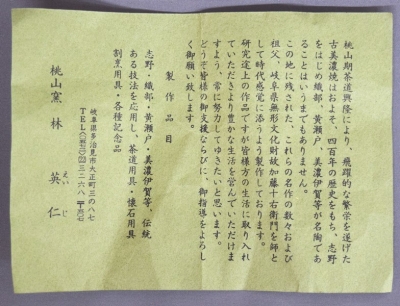 桃山期茶道興隆により、飛躍的な繁栄を遂げた
古美濃焼はおよそ、四百年の歴史をもち、志野
をはじめ織部、黄瀬戸、美濃伊賀等が名陶であ
ることはいうまでもありません。
この地に残された、これらの名作の数々および
祖父、岐阜県無形文化財故加藤十右衛門を師と
して時代感覚に添うよう製作しております。
研究途上の作品ですが皆様方の生活に取り入れ
ていただきより豊かな生活を営んでいただけま
すよう、常に努力してゆきたいと思います。
どうぞ皆様の御支援ならびに、御指導をよろし
く御願い致します。
製作品目
志野・織部・黄瀬戸・美濃伊賀等、伝統
ある技法を応用し、茶道用具・懐石用具
割烹用具・各種記念品
岐阜県多治見市大正町三の八七
TEL
桃山窯 林 英仁
えいじ